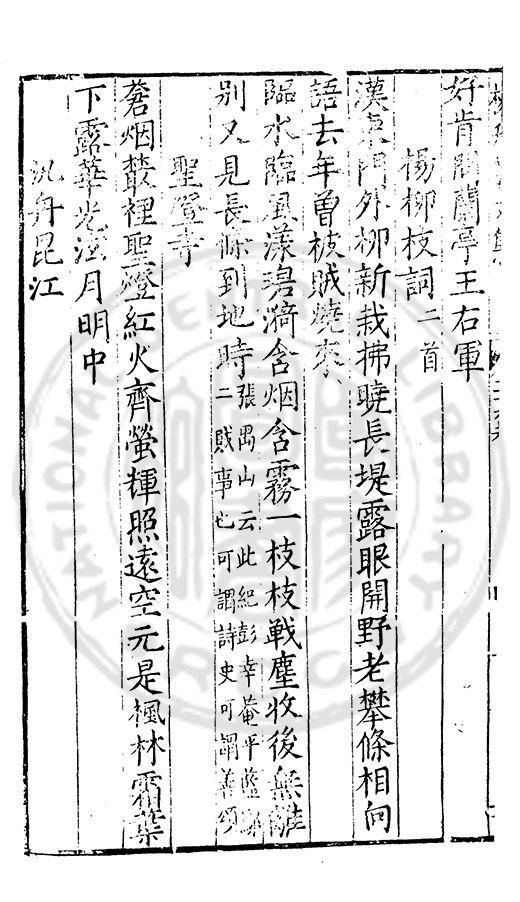 好肯
蘭亭王右軍
楊柳枝詞二首
漢東門外柳新栽拂曉長堤露眼開野老攀條相向
語去年曾被賊燒來
臨水臨風漾碧漪含烟含霧一枝枝戰塵收後無離
別又見長條到地時張禺山云此紀彭幸菴平藍鄢
二賊事也可謂詩史可謂善頌
聖燈寺
蒼烟叢裡聖燈紅火齊螢輝照遠空元是楓林霜葉
下露華光泫月明中
汎舟昆江